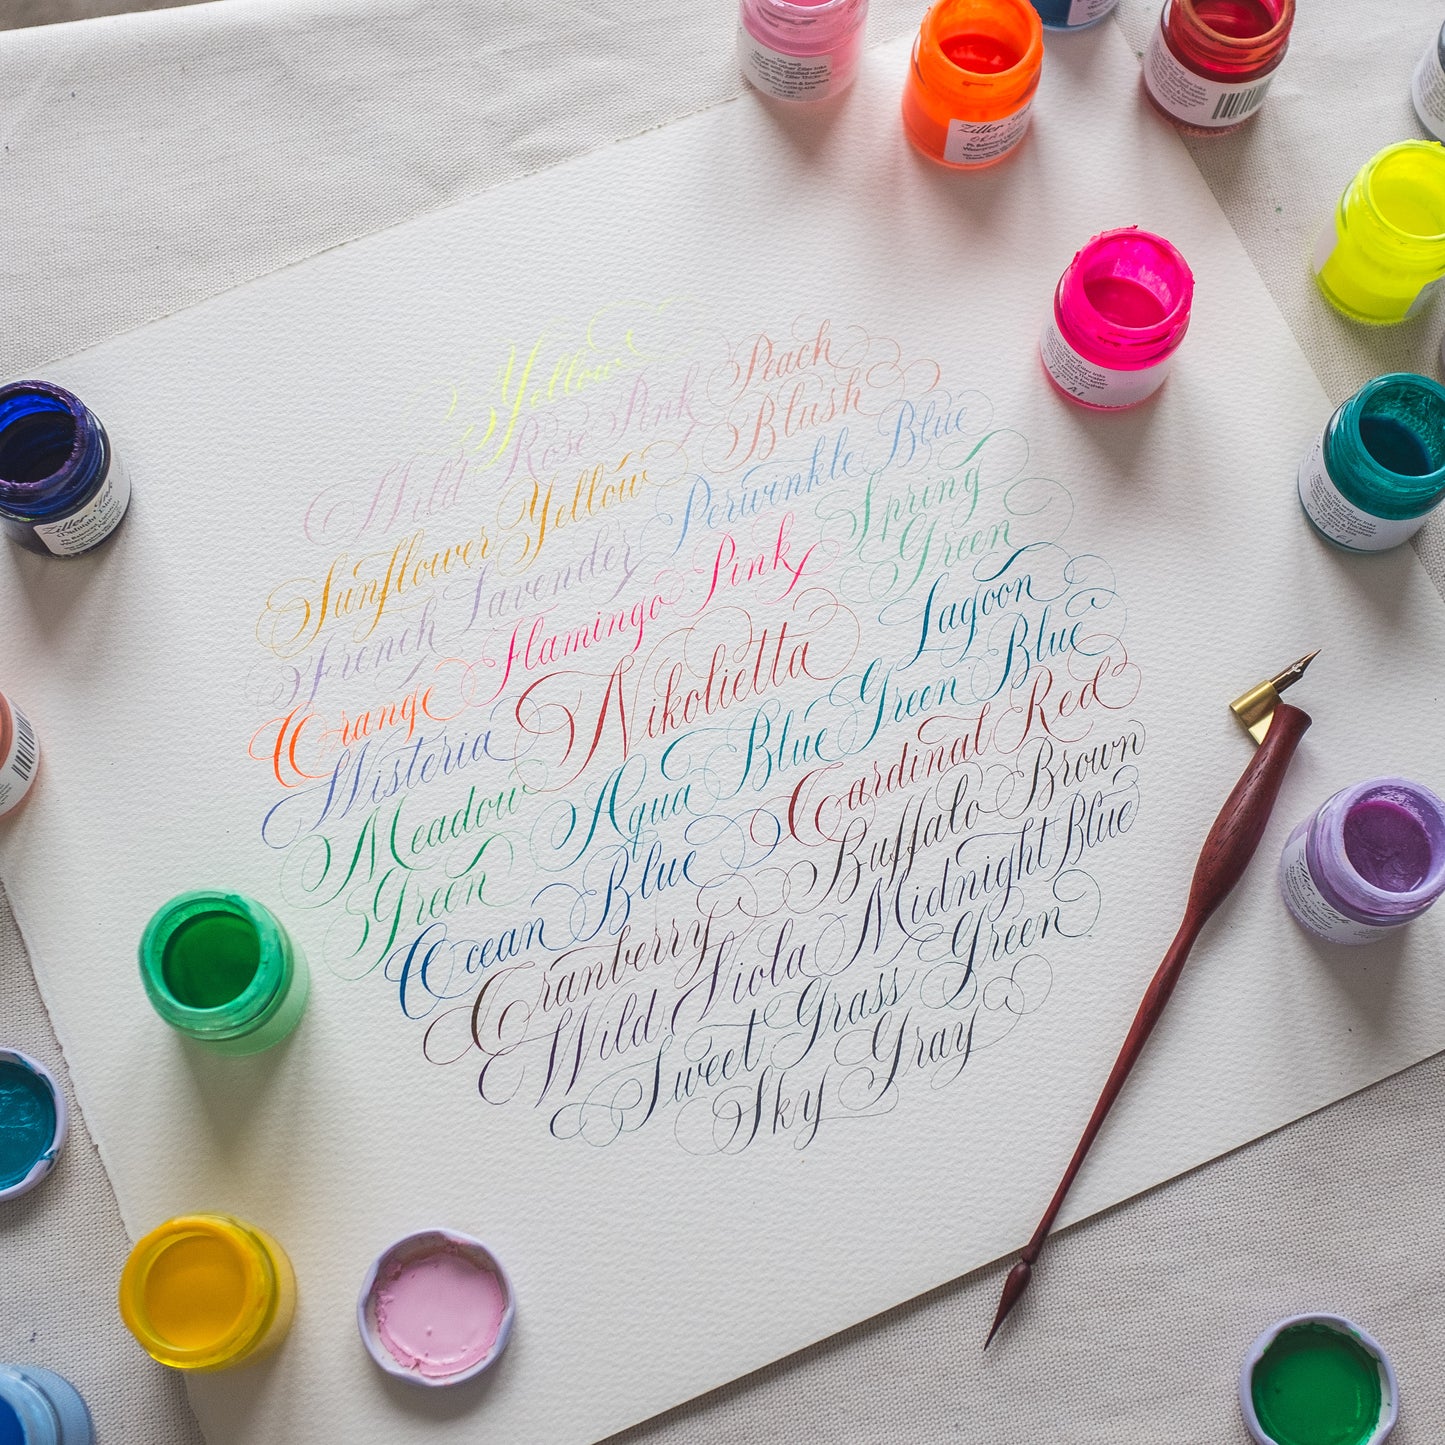 Yellow
Peach
Wild Rose Pink
Blush
Sunflower Yellow
Periwinkle Blue
French Lavender
Spring
Green
Orange
Flamingo Pink
Lagoon
Wisteria
Nikolietta
Meadow
Green
Aqua Blue Green Blue
Ocean Blue
Cardinal Red
Cranberry
Buffalo Brown
Wild Viola
Midnight Blue
Sweet Grass Green
Sky Gray
Ziller Ink
Ziller
ORANGE